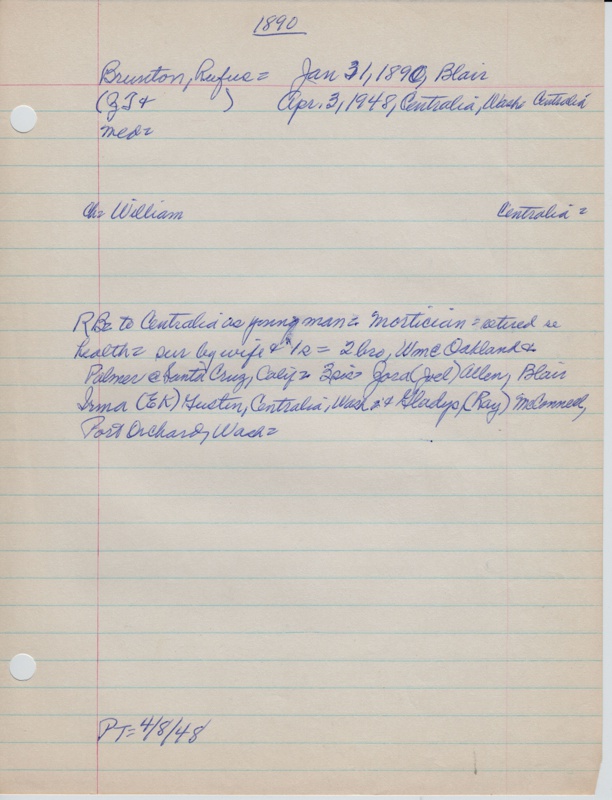 1890
Brunton, Rufus = Jan 31, 1890, Blair
(Z T & ) Apr. 3, 1948, Centralia, Wash Centralia
med=
Ch= William Centralia =
RB= to Centralia as young man = mortician = retired se
health = sur by wife & 1s = 2 bro, Wm c Oakland &
Palmer c Santa Cruz, Calif = 3 sis = Zora (Joel) Allen, Blair
Irma (E K) Gustin, Centralia, Wash & Gladys, (Ray) McConnell,
Port Orchard, Wash =
PT= 4/8/48